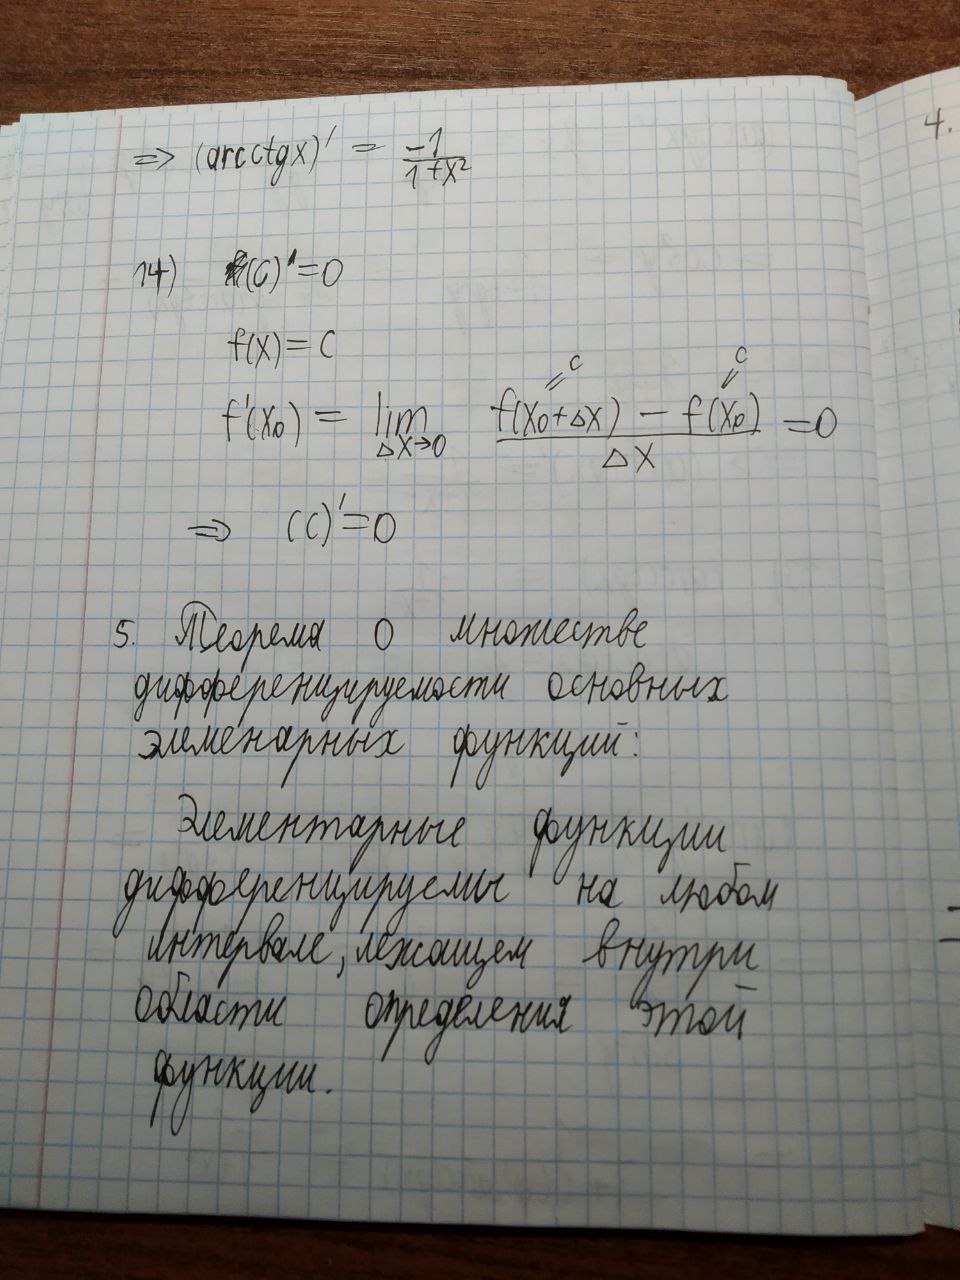 => (arcctgx)' = -1/(1+x²)
4.
14) (C)'=0
f(x)=C
f'(x₀) = lim Δx→0 (f(x₀+Δx) - f(x₀))/Δx =0
=C =C
=> (C)'=0
5. Теорема о множестве
дифференцируемости основных
элеменарных функций:
Элементарные функции
дифференцируемы на любом
интервале, лежащем внутри
области определения этой
функции.